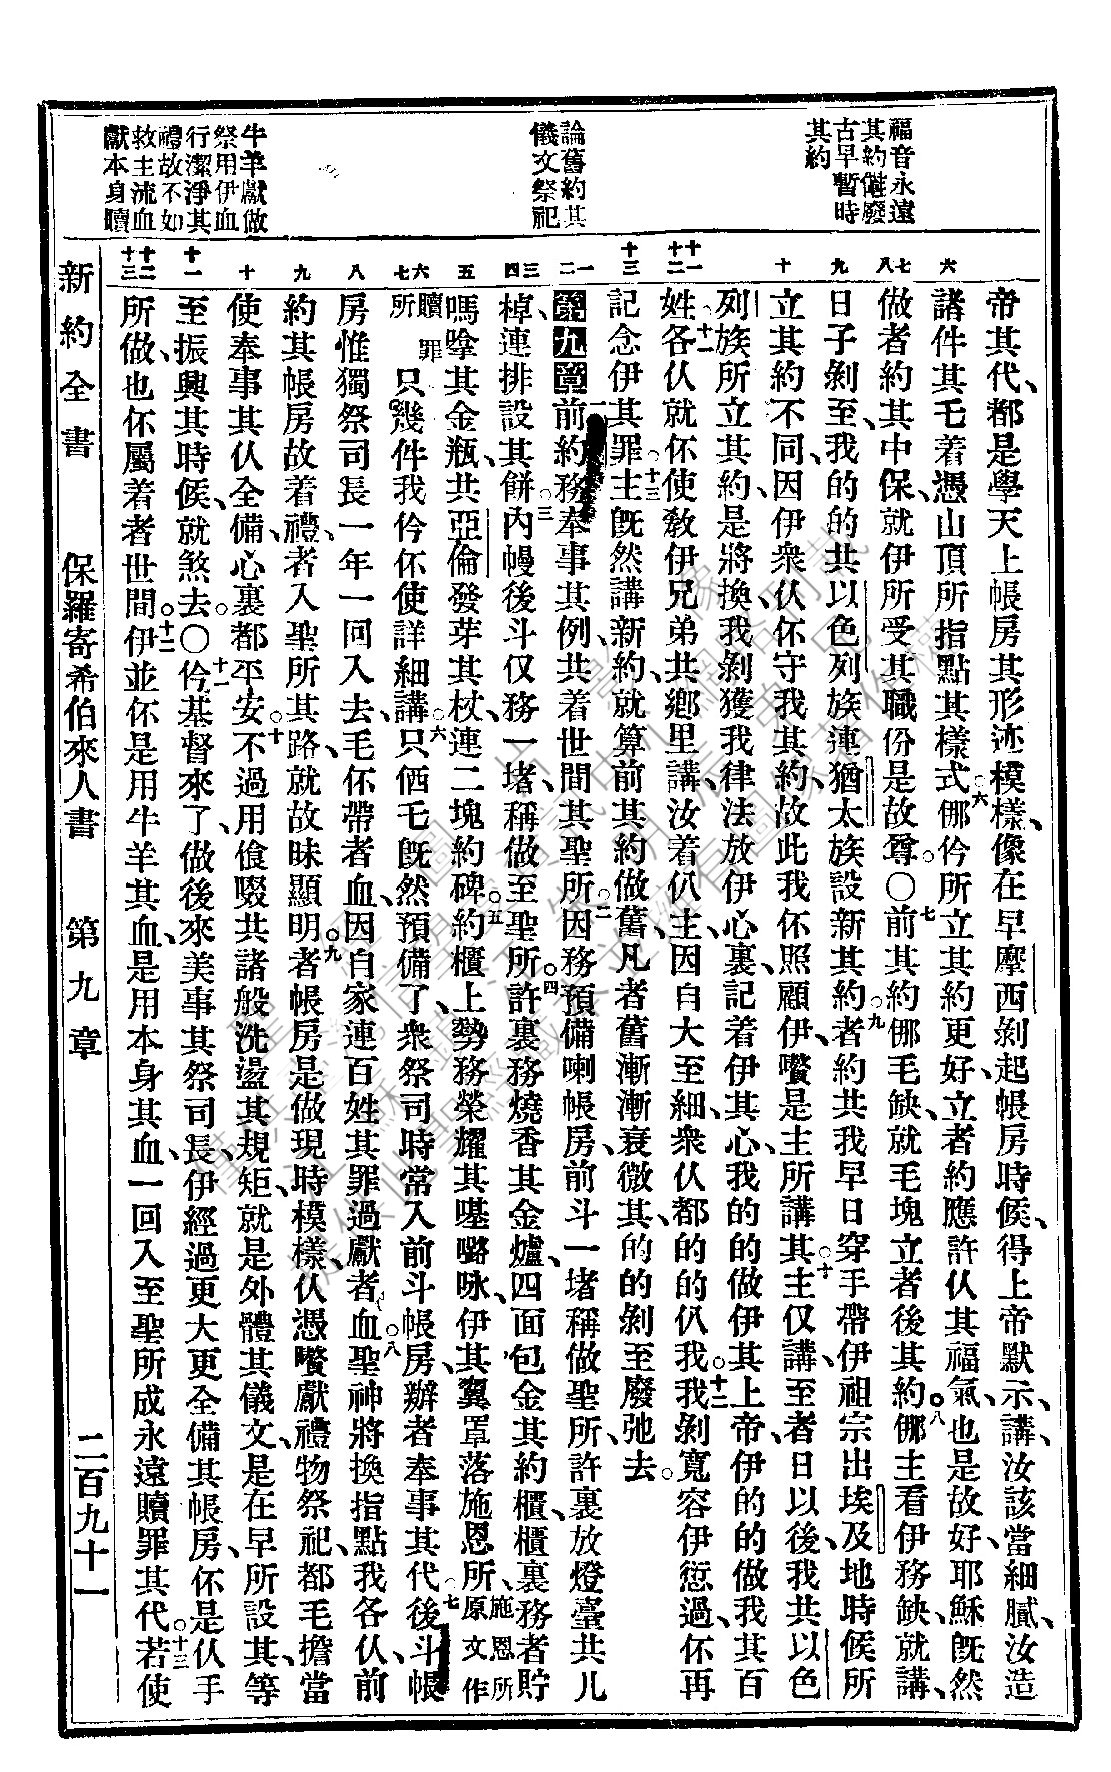 福音永遠
其約僫廢
古早暫時
其約
論舊約其
儀文祭祀
牛羊獻做
祭用伊血
行潔淨其
禮故不如
救主流血
獻本身贖
六
七
八
九
十
十一
十二
十三
一
二
三
四
五
六
七
八
九
十
十一
十二
十三
帝其代、都是學天上帳房其形迹模樣、像在早摩西剝起帳房時候、得上帝默示、講、汝該當細膩、汝造
諸件其乇着憑山頂所指點其樣式○六𠆧所立其約更好、立者約應許仈其福氣、也是故好耶穌旣然
做者約其中保、就伊所受其職份是故尊○七○前其約那毛缺、就毛塊立者後其約○八那主看伊務缺、就講、
日子剝至、我的的共以色列族連猶太族設新其約○九者約共我早日穿手帶伊祖宗出埃及地時候所
立其約不同、因伊衆仈伓守我其約、故此我伓照顧伊、嚽是主所講其○十主仅講、至者日以後、我共以色
列族所立其約、是將換、我剝獲我律法放伊心裏、記着伊其心、我的的做伊其上帝、伊的的做我其百
姓○十一各仈就伓使敎伊兄弟共鄕里講、汝着仈主、因自大至細、衆仈都的的仈我○十二我剝寬容伊愆過、伓再
記念伊其罪○十三主旣然講新約、就算前其約做舊、凡者舊漸漸衰微其、的的剝至廢弛去○
第九章一前約務奉事其例、共着世間其聖所○二因務預備喇帳房、前斗一堵稱做聖所、許裏放燈臺共儿
棹、連排設其餅○三內幔後斗仅務一堵、稱做至聖所○四許裏務燒香其金爐、四面包金其約櫃、櫃裏務者貯
嗎嗱其金瓶、共亞倫發芽其杖、連二塊約碑○五約櫃上勢務榮耀其𠸄嚕咏、伊其翼罩落施恩所、施恩所原文作
贖罪所只幾件我仱伓使詳細講○六只㒰乇旣然預備了、衆祭司時常入前斗帳房、辦者奉事其代○七後斗帳
房惟獨祭司長一年一回入去、毛伓帶者血、因自家連百姓其罪過獻者血○八聖神將換指點我各仈、前
約其帳房故着禮、者入聖所其路、就故昧顯明○九者帳房是做現時模樣、仈憑嚽獻禮物祭祀、都毛擔當
使奉事其仈全備、心裏都平安○十不過用飡啜共諸般洗盪其規矩、就是外體其儀文、是在早所設其、等
至振興其時候、就煞去○十一仱基督來了、做後來美事其祭司長、伊經過更大更全備其帳房、伓是仈手
所做、也伓屬着者世間○十二伊並伓是用牛羊其血、是用本身其血、一回入至聖所、成永遠贖罪其代○十三若使
新約全書　保羅寄希伯來人書　第九章　二百九十一